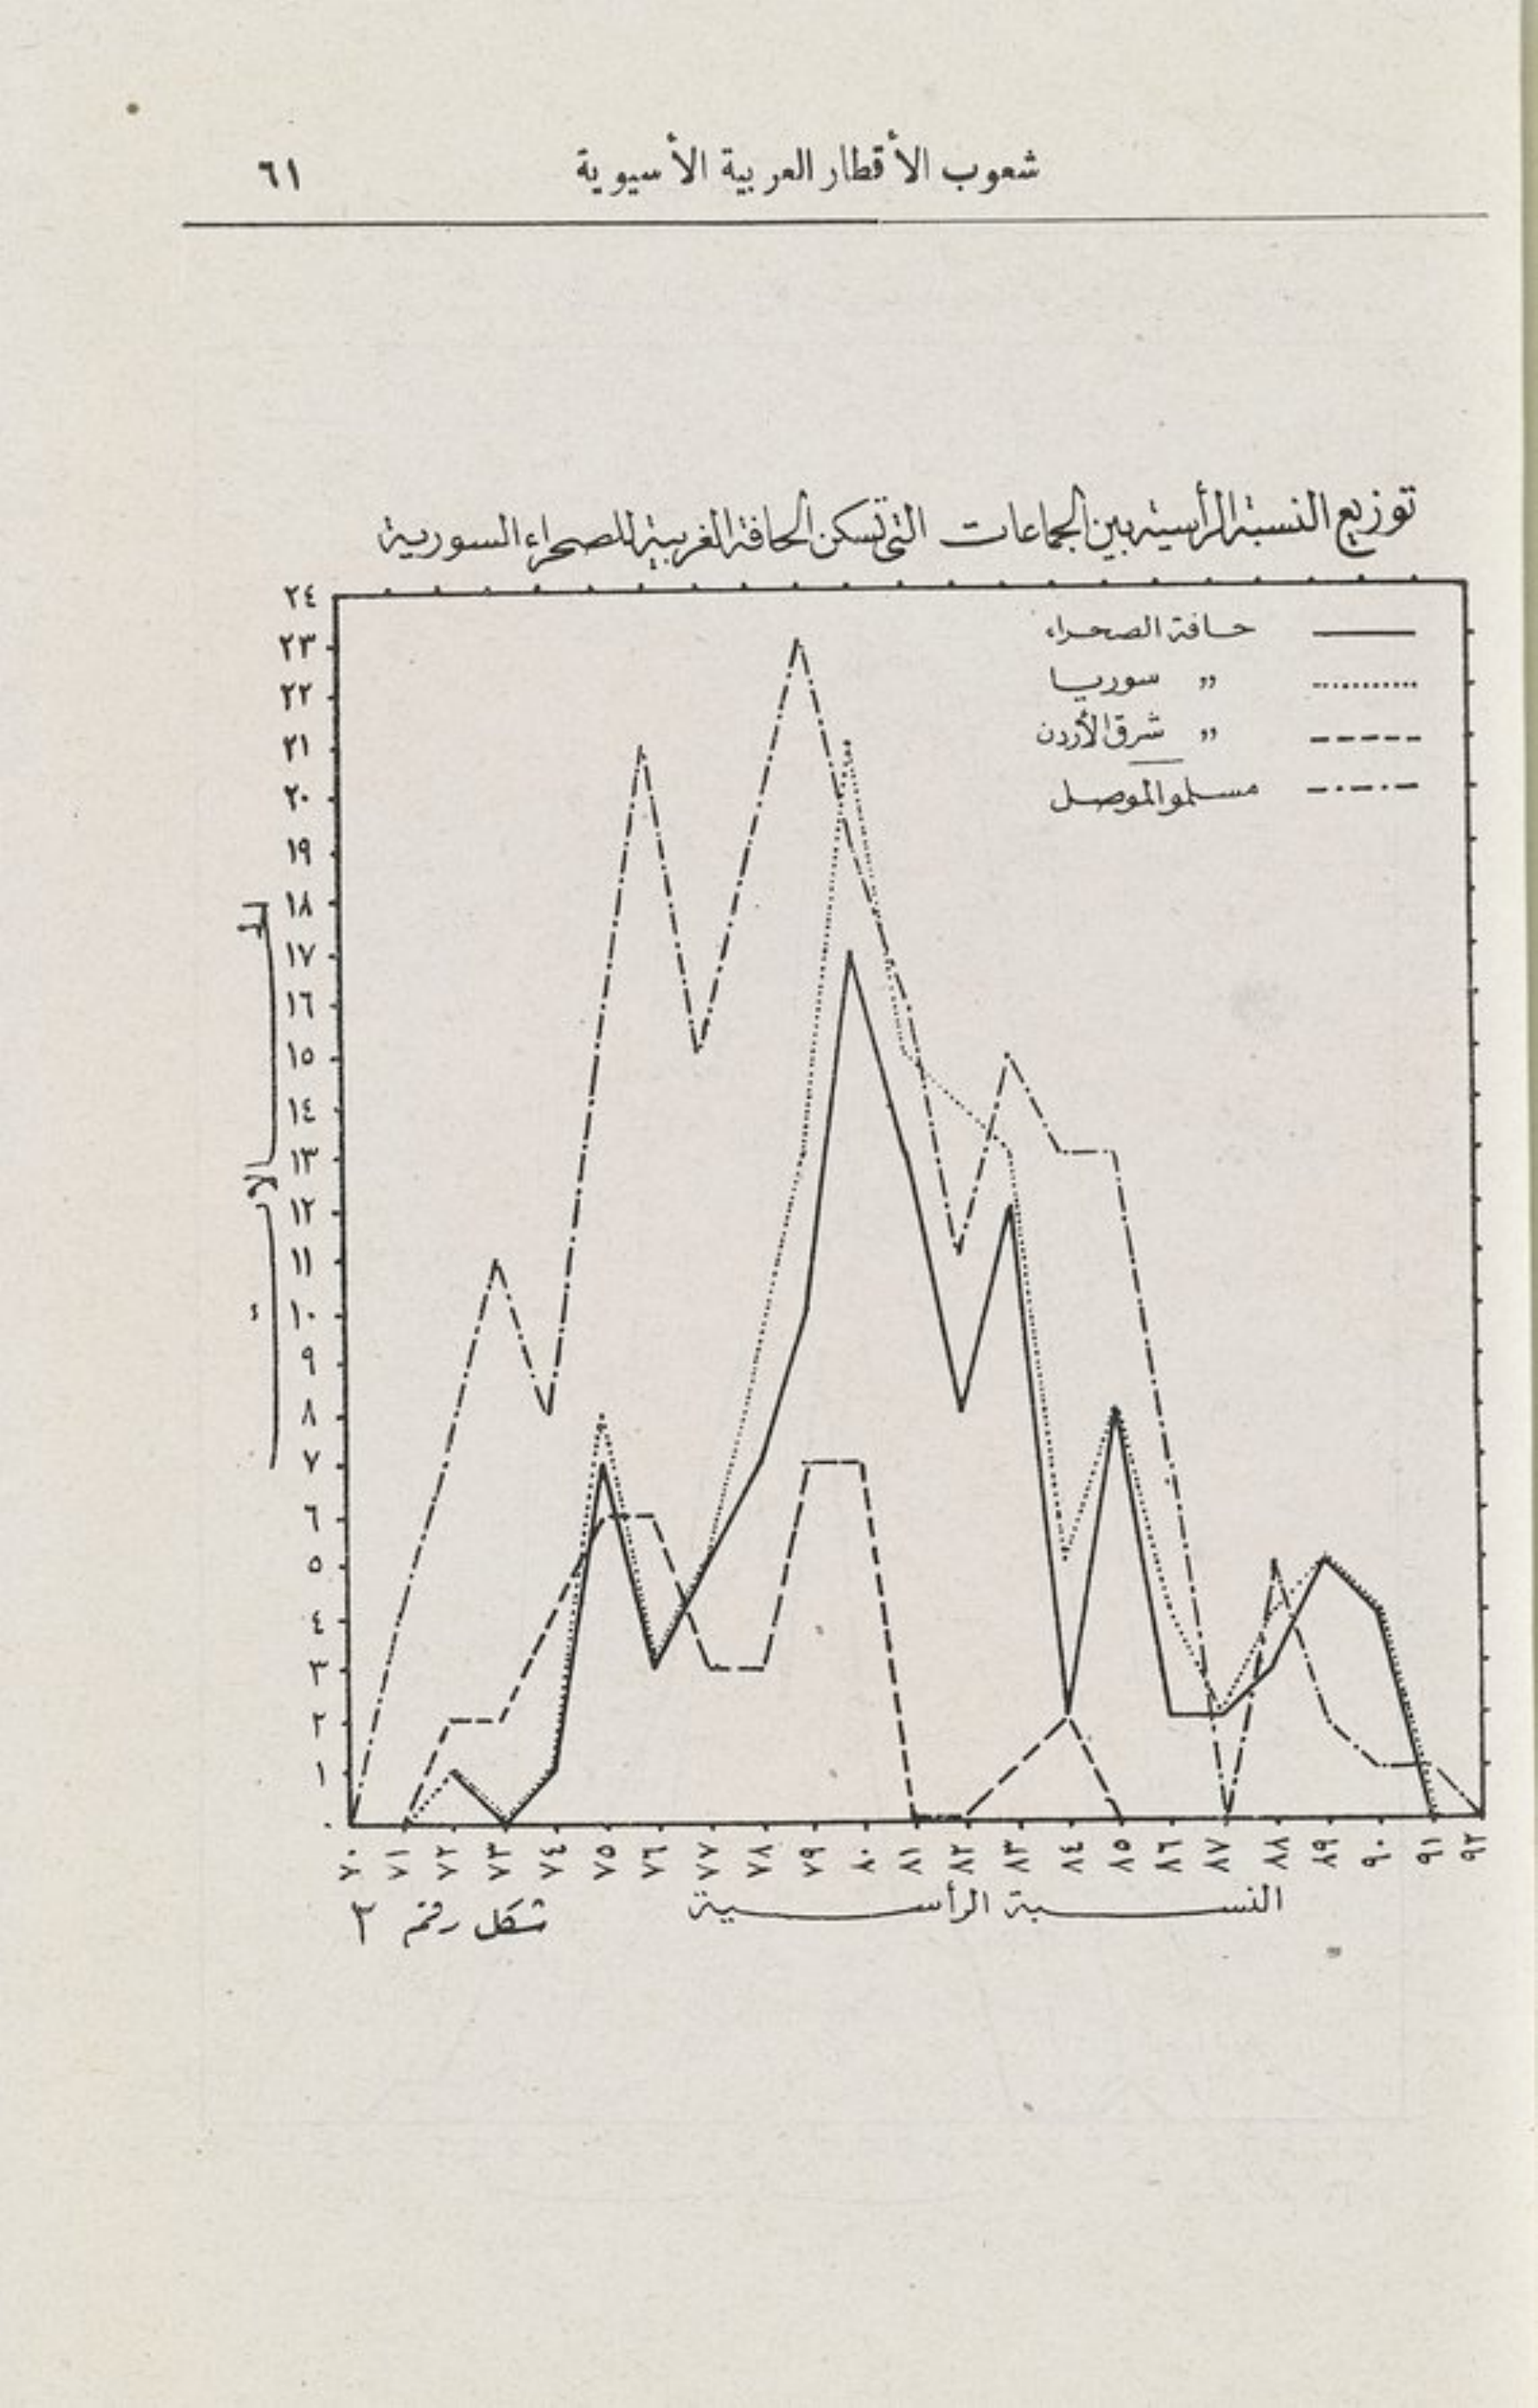 شعوب الأقطار العربية الأسيوية ٦١
توزيع النسبة الرأسية بين الجماعات التى تسكن الحافة الغربية للصحراء السورية
حافة الصحراء
„ سوريا
„ شرق الأردن
مسلمو الموصل
٢٤
٢٣
٢٢
٢١
٢٠
١٩
١٨
١٧
١٦
١٥
١٤
١٣
١٢
١١
١٠
٩
٨
٧
٦
٥
٤
٣
٢
١
٠
الحالات
٧٠ ٧١ ٧٢ ٧٣ ٧٤ ٧٥ ٧٦ ٧٧ ٧٨ ٧٩ ٨٠ ٨١ ٨٢ ٨٣ ٨٤ ٨٥ ٨٦ ٨٧ ٨٨ ٨٩ ٩٠ ٩١ ٩٢
النسبة الرأسية
شكل رقم ٣